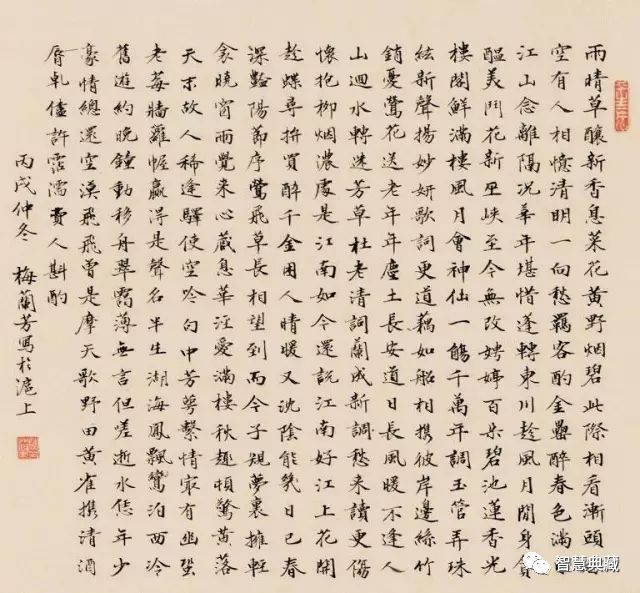 雨晴草釀新香息菜花黃野烟碧此際相看漸頭白
空有人相憶清明一向愁羈客酌金罍醉春色滿
江山念離隔況華年堪惜蓬轉東川趁風月閒身貪
醖美鬥花新巫峽至今無改娉婷百朵碧池蓮香光
樓閣鮮滿樓風月會神仙一觴千萬年調玉管弄珠
絃新聲揚妙妍歌詞更道藕如船相携彼岸邊絲竹
銷憂鶯花送老年年塵土長安道日長風暖不逢人
山迴水轉迷芳草杜老清詞蘭成新調愁来讀更傷
懷抱柳烟濃處是江南如今還説江南好江上花開
趁蝶尋拚買醉千金困人晴暖又沈陰能幾日已春
深豔陽節序鶯飛草長相望到而今子規夢裏擁輕
衾曉窗雨覺来心藏息華涇愛滿樓秋趣頓驚黃落
天末故人稀逢驛使空吟白中芳萼繫情寂有幽蛩
老莓牆籬幄贏得是聲名半生湖海鳳飄鸞泊西冷
舊遊約晚鐘動移舟翠靄薄無言但嗟逝水恁年少
豪情總還空漠飛飛曾是摩天歌野田黃雀携清酒
脣乹儘許霑濡費人斟酌
丙戌仲冬 梅蘭芳寫於滬上
智慧典藏